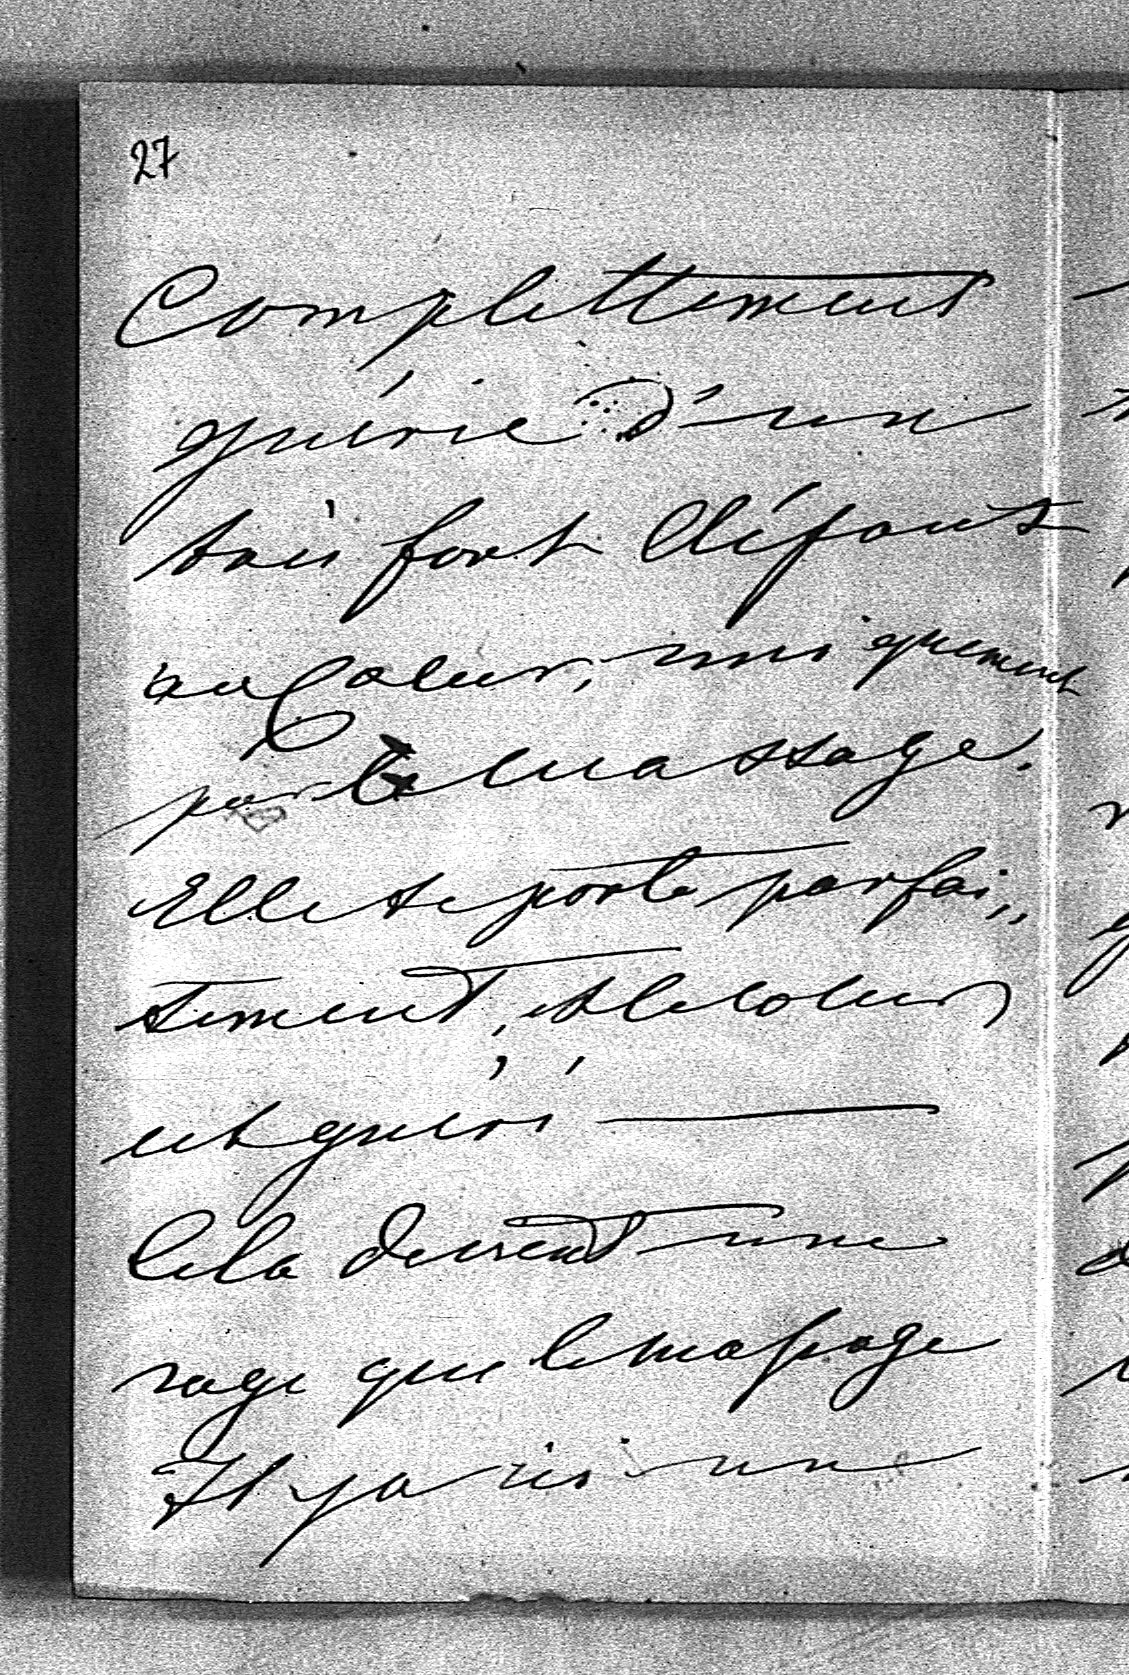 27
Complettement
guérie d'un
très fort défaut
au Coeur, uniquement
par le massage.
Elle se porte parfai„
tement, et le coeur
est guéri —
Cela devient une
rage que le massage
Il y a ici un